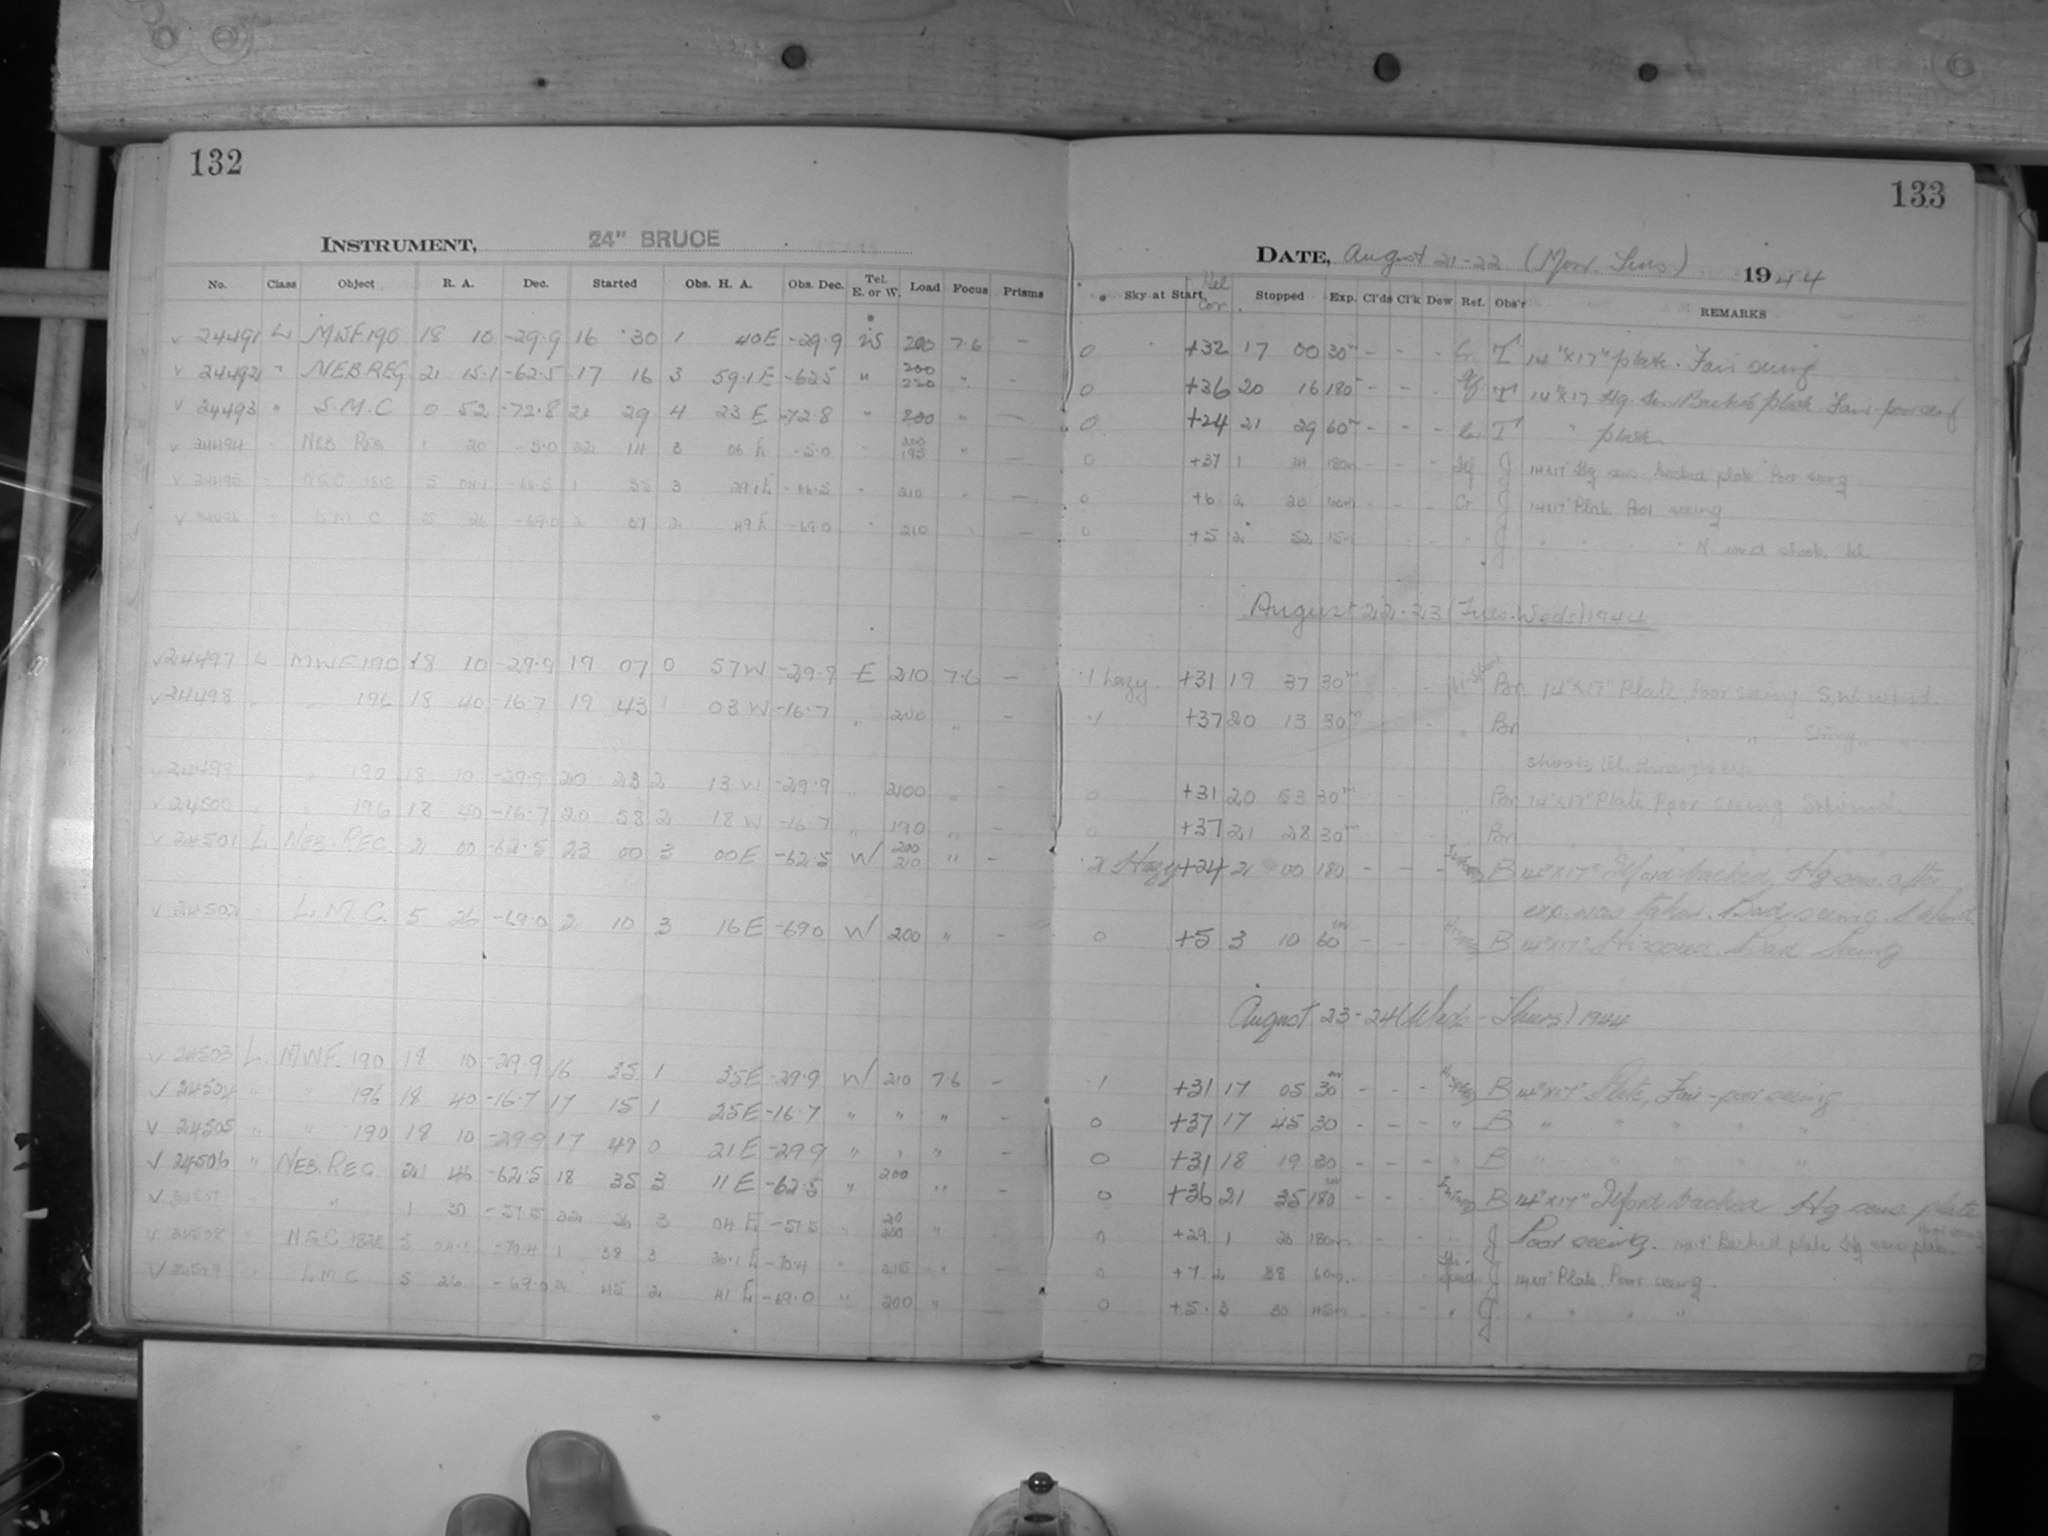 132
133
INSTRUMENT, 24" BRUCE
DATE, August 21-22 (Mon. Tues) 1944
No. Class Object R. A. Dec. Started Obs. H. A. Obs. Dec. Tel. E. or W. Load Focus Prisms
Sky at Start Stopped Exp. Cl'ds Cl'k Dew Ref. Obs'r REMARKS
v 24491 L MWF 190 18 10 -29.9 16 30 1 40E -29.9 W 200 7.6 — 0 +32 17 00 30m - - - T 14"x17" plate. Fair seeing
v 24492 " NEB REG 21 15.1 -62.5 17 16 3 59.1E -62.5 " 200 220 " — 0 +36 20 16 180 - - T 14"x17" Hg. Sen Backed plate Fair-poor
v 24493 " S.M.C 0 52 -72.8 21 29 4 23 E -72.8 " 200 " — 0 +24 21 29 60m - - - T " plate
v 24494 NEB REG 1 20 -5.0 22 14 3 06 E -5.0 " 200 195 " — 0 +37 1 14 180m - - - J 14x17" Hg sens. backed plate Poor seeing
v 24495 5 1 35 3 29.1E -66.5 " 210 " — 0 +6 2 20 - - - Cr J 14x17" Plate Poor seeing
v 24496 L.M.C 5 26 -69.0 2 37 2 49 E -69.0 " 210 — 0 +5 2 52 15m J " " N wind shook tel
August 22-23 (Tues. Weds) 1944
v 24497 L MWF 190 18 10 -29.9 19 07 0 57W -29.9 E 210 7.6 — .1 hazy. +31 19 37 30m - - - Br 14"x17" Plate Poor seeing S.W. wind
v 24498 " " 196 18 40 -16.7 19 43 1 03W -16.7 " 200 " — .1 +37 20 13 30m Br " Strong " "
shook tel. throughout
v 24499 " 190 18 10 -29.9 20 23 2 13W -29.9 " 200 " — 0 +31 20 53 30m Br 14"x17" Plate Poor seeing
v 24500 " " 196 18 40 -16.7 20 58 2 18W -16.7 " 190 " — 0 +37 21 28 30m Br
v 24501 L NEB. REG. 21 00 -62.5 23 00 3 00E -62.5 W 200 210 " — .2 Hazy +24 21 00 180 - - - B 14"x17" Ilford backed, Hg sens. after
exp. was taken. Bad seeing.
v 24502 L.M.C. 5 26 -69.0 2 10 3 16E -69.0 W 200 " — 0 +5 3 10 60m - - - B 14"x17" Hi-speed. Bad Seeing
August 23-24 (Weds - Thurs) 1944
v 24503 L MWF. 190 18 10 -29.9 16 35 1 35E -29.9 W 210 7.6 — .1 +31 17 05 30m - - - B 14"x17" Plate, Fair-poor seeing
v 24504 " " 196 18 40 -16.7 17 15 1 25E -16.7 " " " — 0 +37 17 45 30 - - - " B " " " " "
v 24505 " " 190 18 10 -29.9 17 49 0 21E -29.9 " " " — 0 +31 18 19 30 - - - " B " " " " "
v 24506 " NEB. REG. 21 46 -62.5 18 35 3 11E -62.5 " 200 " — 0 +36 21 35 180m - - - B 14"x17" Ilford backed Hg sens. plate
Poor seeing.
v 24507 " " 1 30 -57.5 22 26 3 04 E -57.5 " 200 " 0 +29 1 26 180m - - - " J Backed plate Hg sens plate.
v 24508 " 5 -70.4 1 38 3 26.1E -70.4 " " — 0 +7 2 38 60m - - - J 14x17" Plate. Poor seeing.
v 24509 " L.M.C 5 26 -69.0 2 45 2 41 E -69.0 " 200 " — 0 +5 3 30 45m - - - " J " " " "